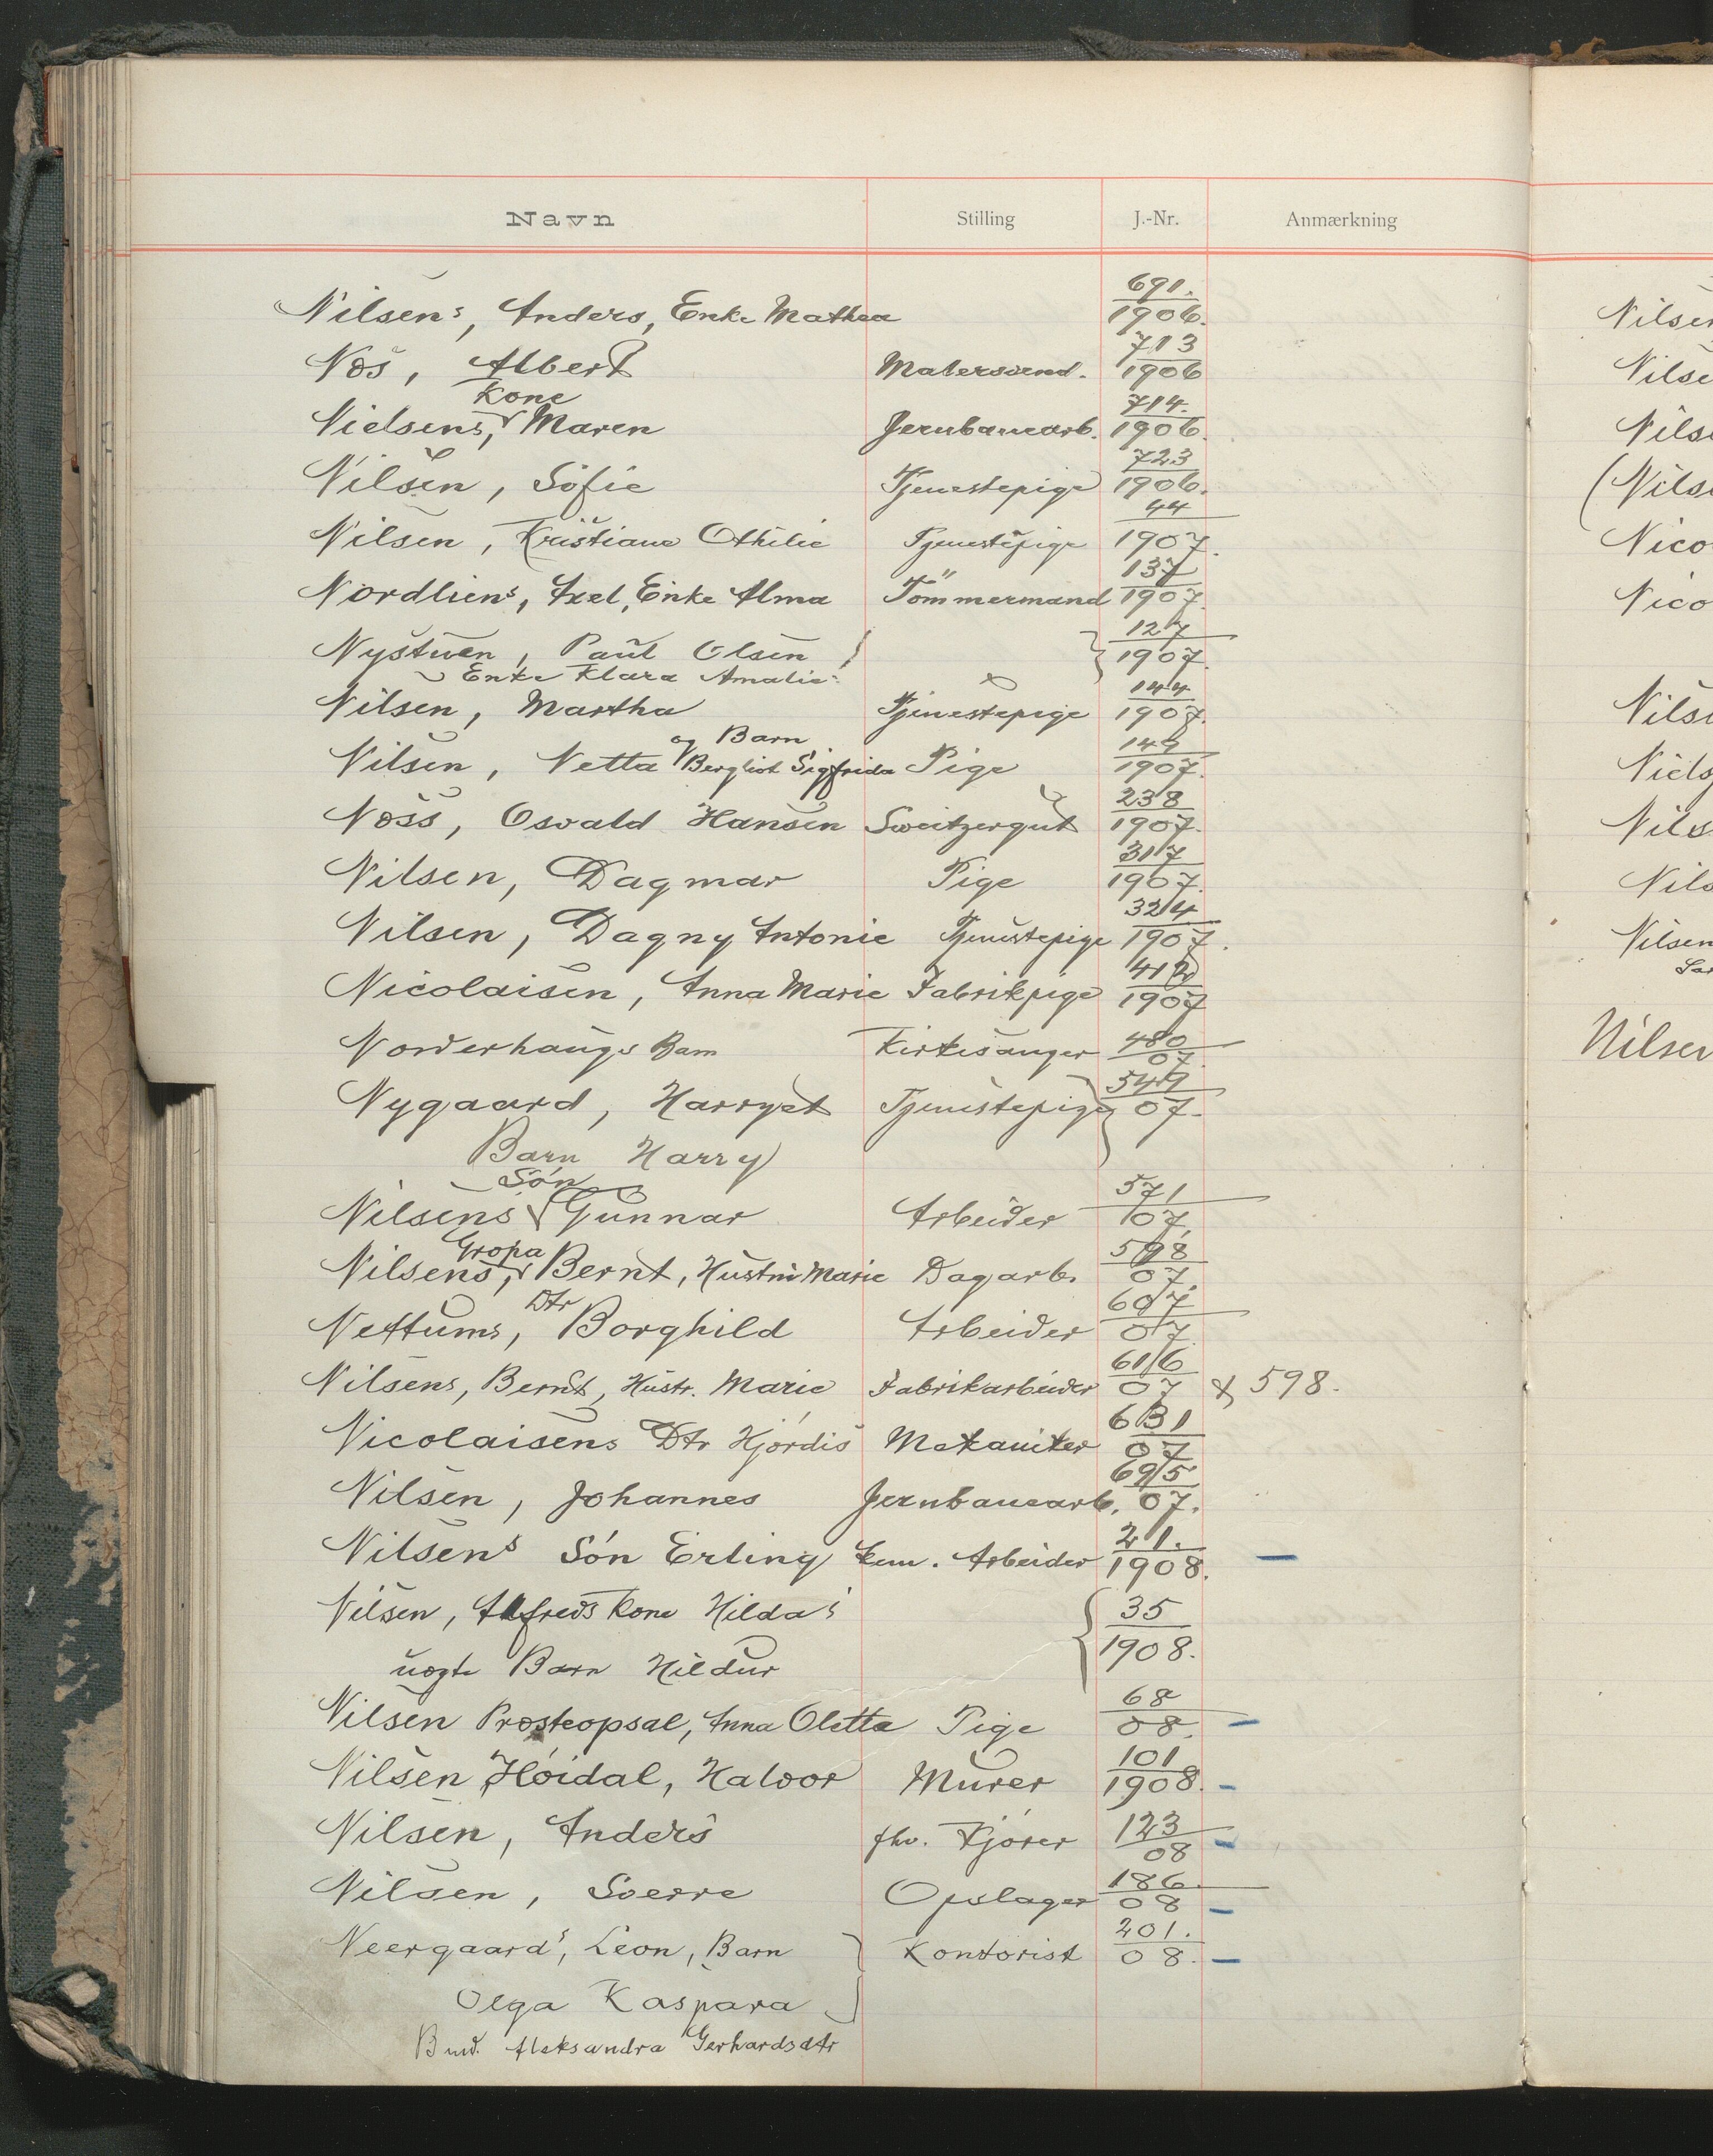 Navn Stilling J.-Nr. Anmærkning
Nilsens, Anders, Enke Mathea 691./1906.
Næs, Albert Malersvend. 713/1906
Kone
Nielsens, Maren Jernbanearb. 714./1906.
Nilsen, Sofie Tjenestepige 723/1906.
Nilsen, Kristiane Othilie Tjenestepige 44/1907.
Nordliens, Axel, Enke Alma Tömmermand 137/1907
Nystuen, Paul Olsen } } 127/1907.
Enke Klara Amalie
Nilsen, Martha Tjenestepige 144/1907.
og Barn
Nilsen, Netta Bergliot Sigfrida Pige 149/1907.
Næss, Osvald Hansen Sveitzergut 238/1907.
Nilsen, Dagmar Pige 317/1907.
Nilsen, Dagny Antonie Tjenestepige 324/1907.
Nicolaisen, Anna Marie Fabrikpige 412/1907
Norderhaugs Barn Kirkesanger 480/07.
Nygaard, Harryet Tjenestepige } 549/07.
Barn Harry
Søn
Nilsens Gunnar Arbeider 571/07.
Gropa
Nilsens, Bernt, Hustru Marie Dagarb. 598/07.
Dtr
Nettums, Borghild Arbeider 607/07
Nilsens, Bernt, Hustr. Marie Fabrikarbeider 616/07 & 598.
Nicolaisens Dtr Hjördis Mekaniker 631/07
Nilsen, Johannes Jernbanearb. 695/07.
Nilsens Són Erling kem. Arbeider 211./1908. —
Nilsen, Alfreds Kone Hilda's { 35/1908.
uægte Barn Hildur
Nilsen Præsteopsal, Anna Oletta Pige 68/08. —
Nilsen Höidal, Halvor Murer 101/1908. —
Nilsen, Anders fhv. Kjórer 123/08 —
Nilsen, Sverre Opslager 186./08 —
Neergaard's, Leon, Barn } Kontorist 201./08. —
Olga Kaspara
Bmd. Aleksandra Gerhardsdtr
Nilsen
Nilse
Nils
(Nils
Nico
Nico
Nils
Niels
Nils
Nils
Nilsen
Nilsen